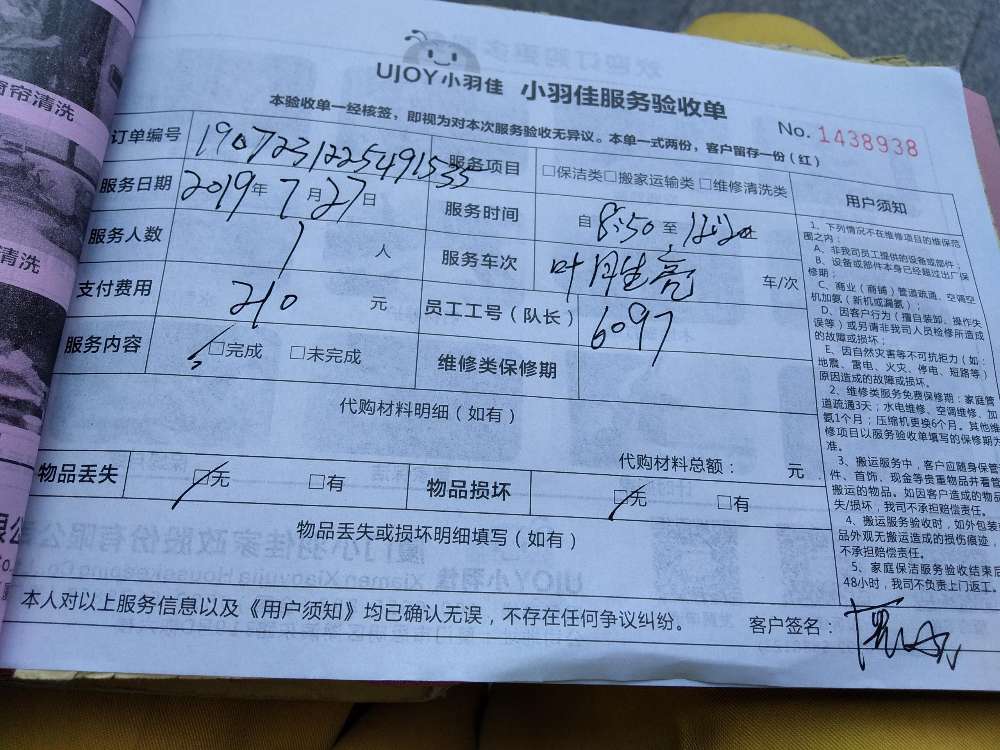 帘清洗
清洗
UJOY小羽佳 小羽佳服务验收单
本验收单一经核签，即视为对本次服务验收无异议。本单一式两份，客户留存一份（红）
No. 1438938
订单编号 190723122549155
服务项目 □保洁类□搬家运输类□维修清洗类
服务日期 2019年7月27日
服务时间 自8:50至
服务人数 1人
服务车次 车/次
支付费用 210元
员工工号（队长） 6097
服务内容 □完成 □未完成
维修类保修期
代购材料明细（如有）
代购材料总额： 元
物品丢失 □无 □有
物品损坏 □无 □有
物品丢失或损坏明细填写（如有）
本人对以上服务信息以及《用户须知》均已确认无误，不存在任何争议纠纷。
客户签名：
用户须知
1、下列情况不在维修项目的维保范
围之内：
A、非我司员工提供的设备或部件；
B、设备或部件本身已经超过出厂保
修期；
C、商业（商铺）管道疏通、空调空
机加氨（新机或漏氨）；
D、因客户行为（擅自装卸、操作失
误等）或另请非我司人员检修所造成
的故障或损坏；
E、因自然灾害等不可抗拒力（如：
地震、雷电、火灾、停电、短路等）
原因造成的故障或损坏。
2、维修类服务免费保修期：家庭管
道疏通3天；水电维修、空调维修、加
氨1个月；压缩机更换6个月。其他维
修项目以服务验收单填写的保修期为
准。
3、搬运服务中，客户应随身保管
件、首饰、现金等贵重物品并看管
搬运的物品。如因客户造成的物品
失/损坏，我司不承担赔偿责任。
4、搬运服务验收时，如外包装
品外观无搬运造成的损伤痕迹，
不承担赔偿责任。
5、家庭保洁服务验收结束后
48小时，我司不负责上门返工。